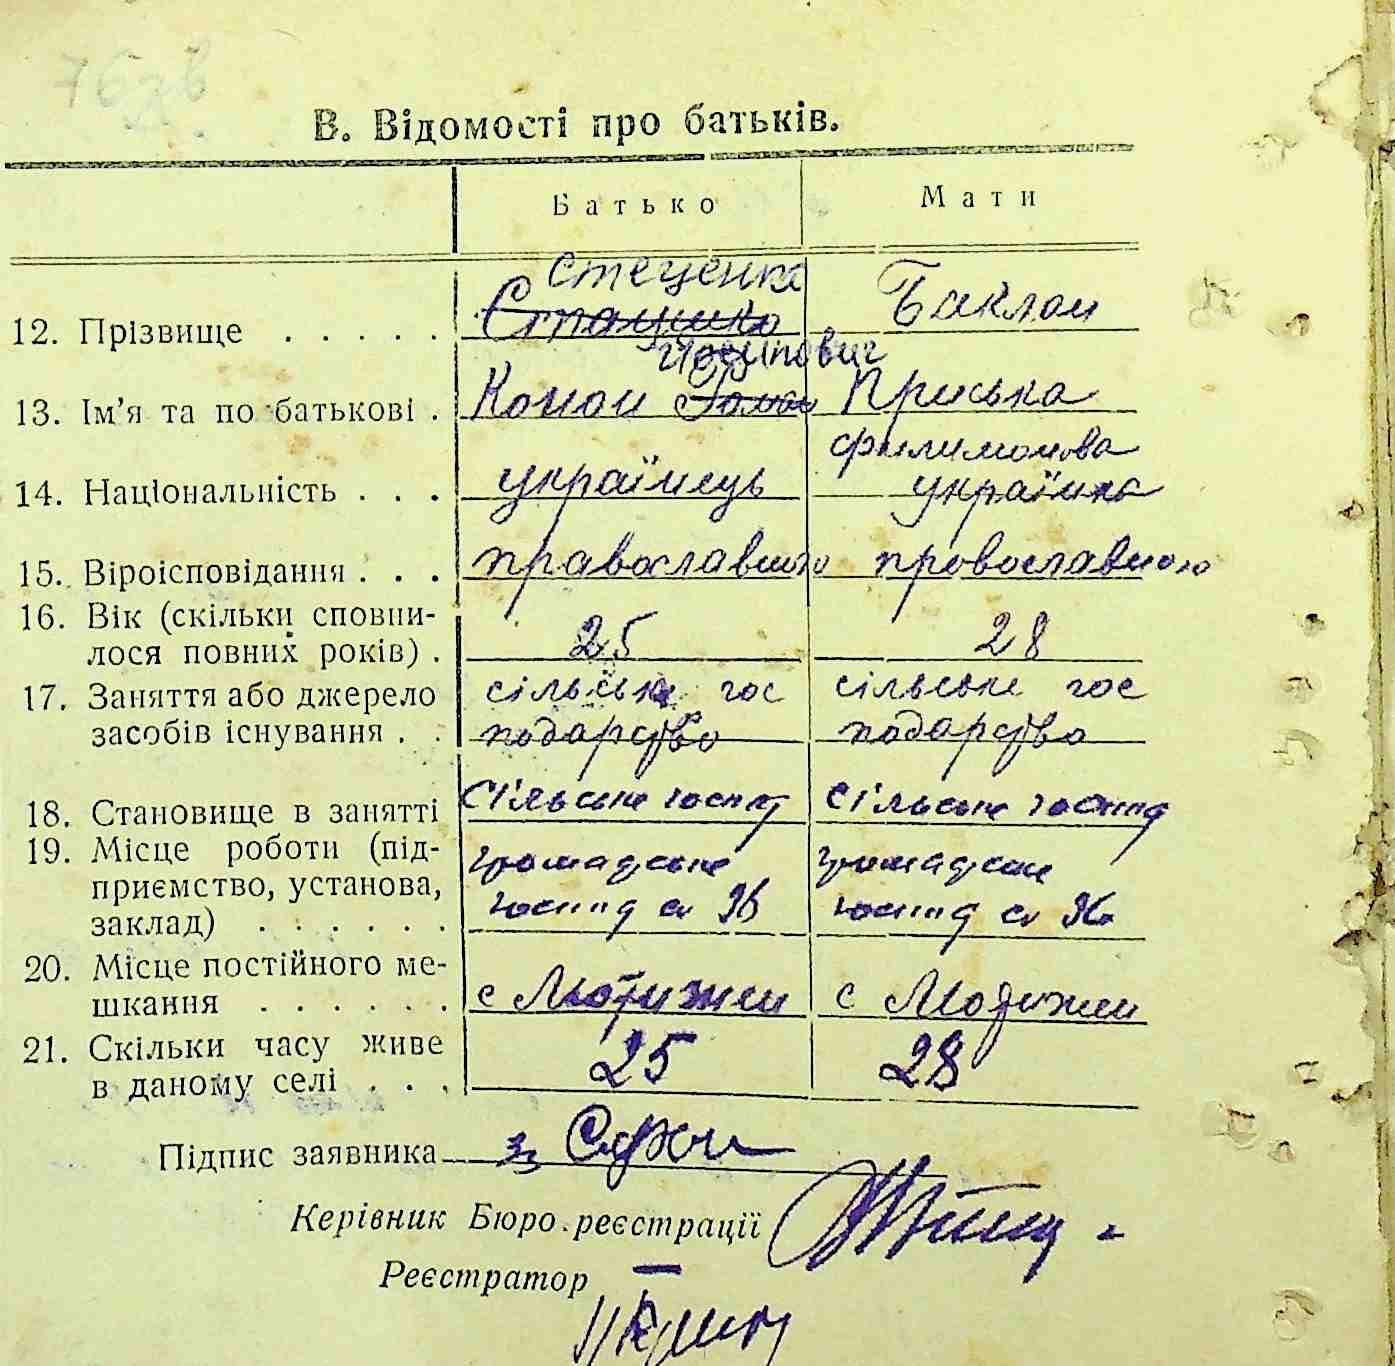 76зв
В. Відомості про батьків.
Батько Мати
Стеценко
12. Прізвище . . . . . Стаценко Баклан
Йосипович
13. Ім'я та по батькові . Конон Роман Приська
Филимонова
14. Національність . . . українець українка
15. Віроісповідання . . . православного провославною
16. Вік (скільки сповни-
лося повних років) . 25 28
17. Заняття або джерело сільське гос сільське гос
засобів існування . . подарство подарство
18. Становище в занятті Сільське госпд Сільське госпд
19. Місце роботи (під- громадське громадске
приємство, установа, госпд 96 госпд 96
заклад) . . . . . .
20. Місце постійного ме-
шкання . . . . . . с Лютижи с Лютижи
21. Скільки часу живе
в даному селі . . . 25 28
Підпис заявника за
Керівник Бюро реєстрації
Реєстратор